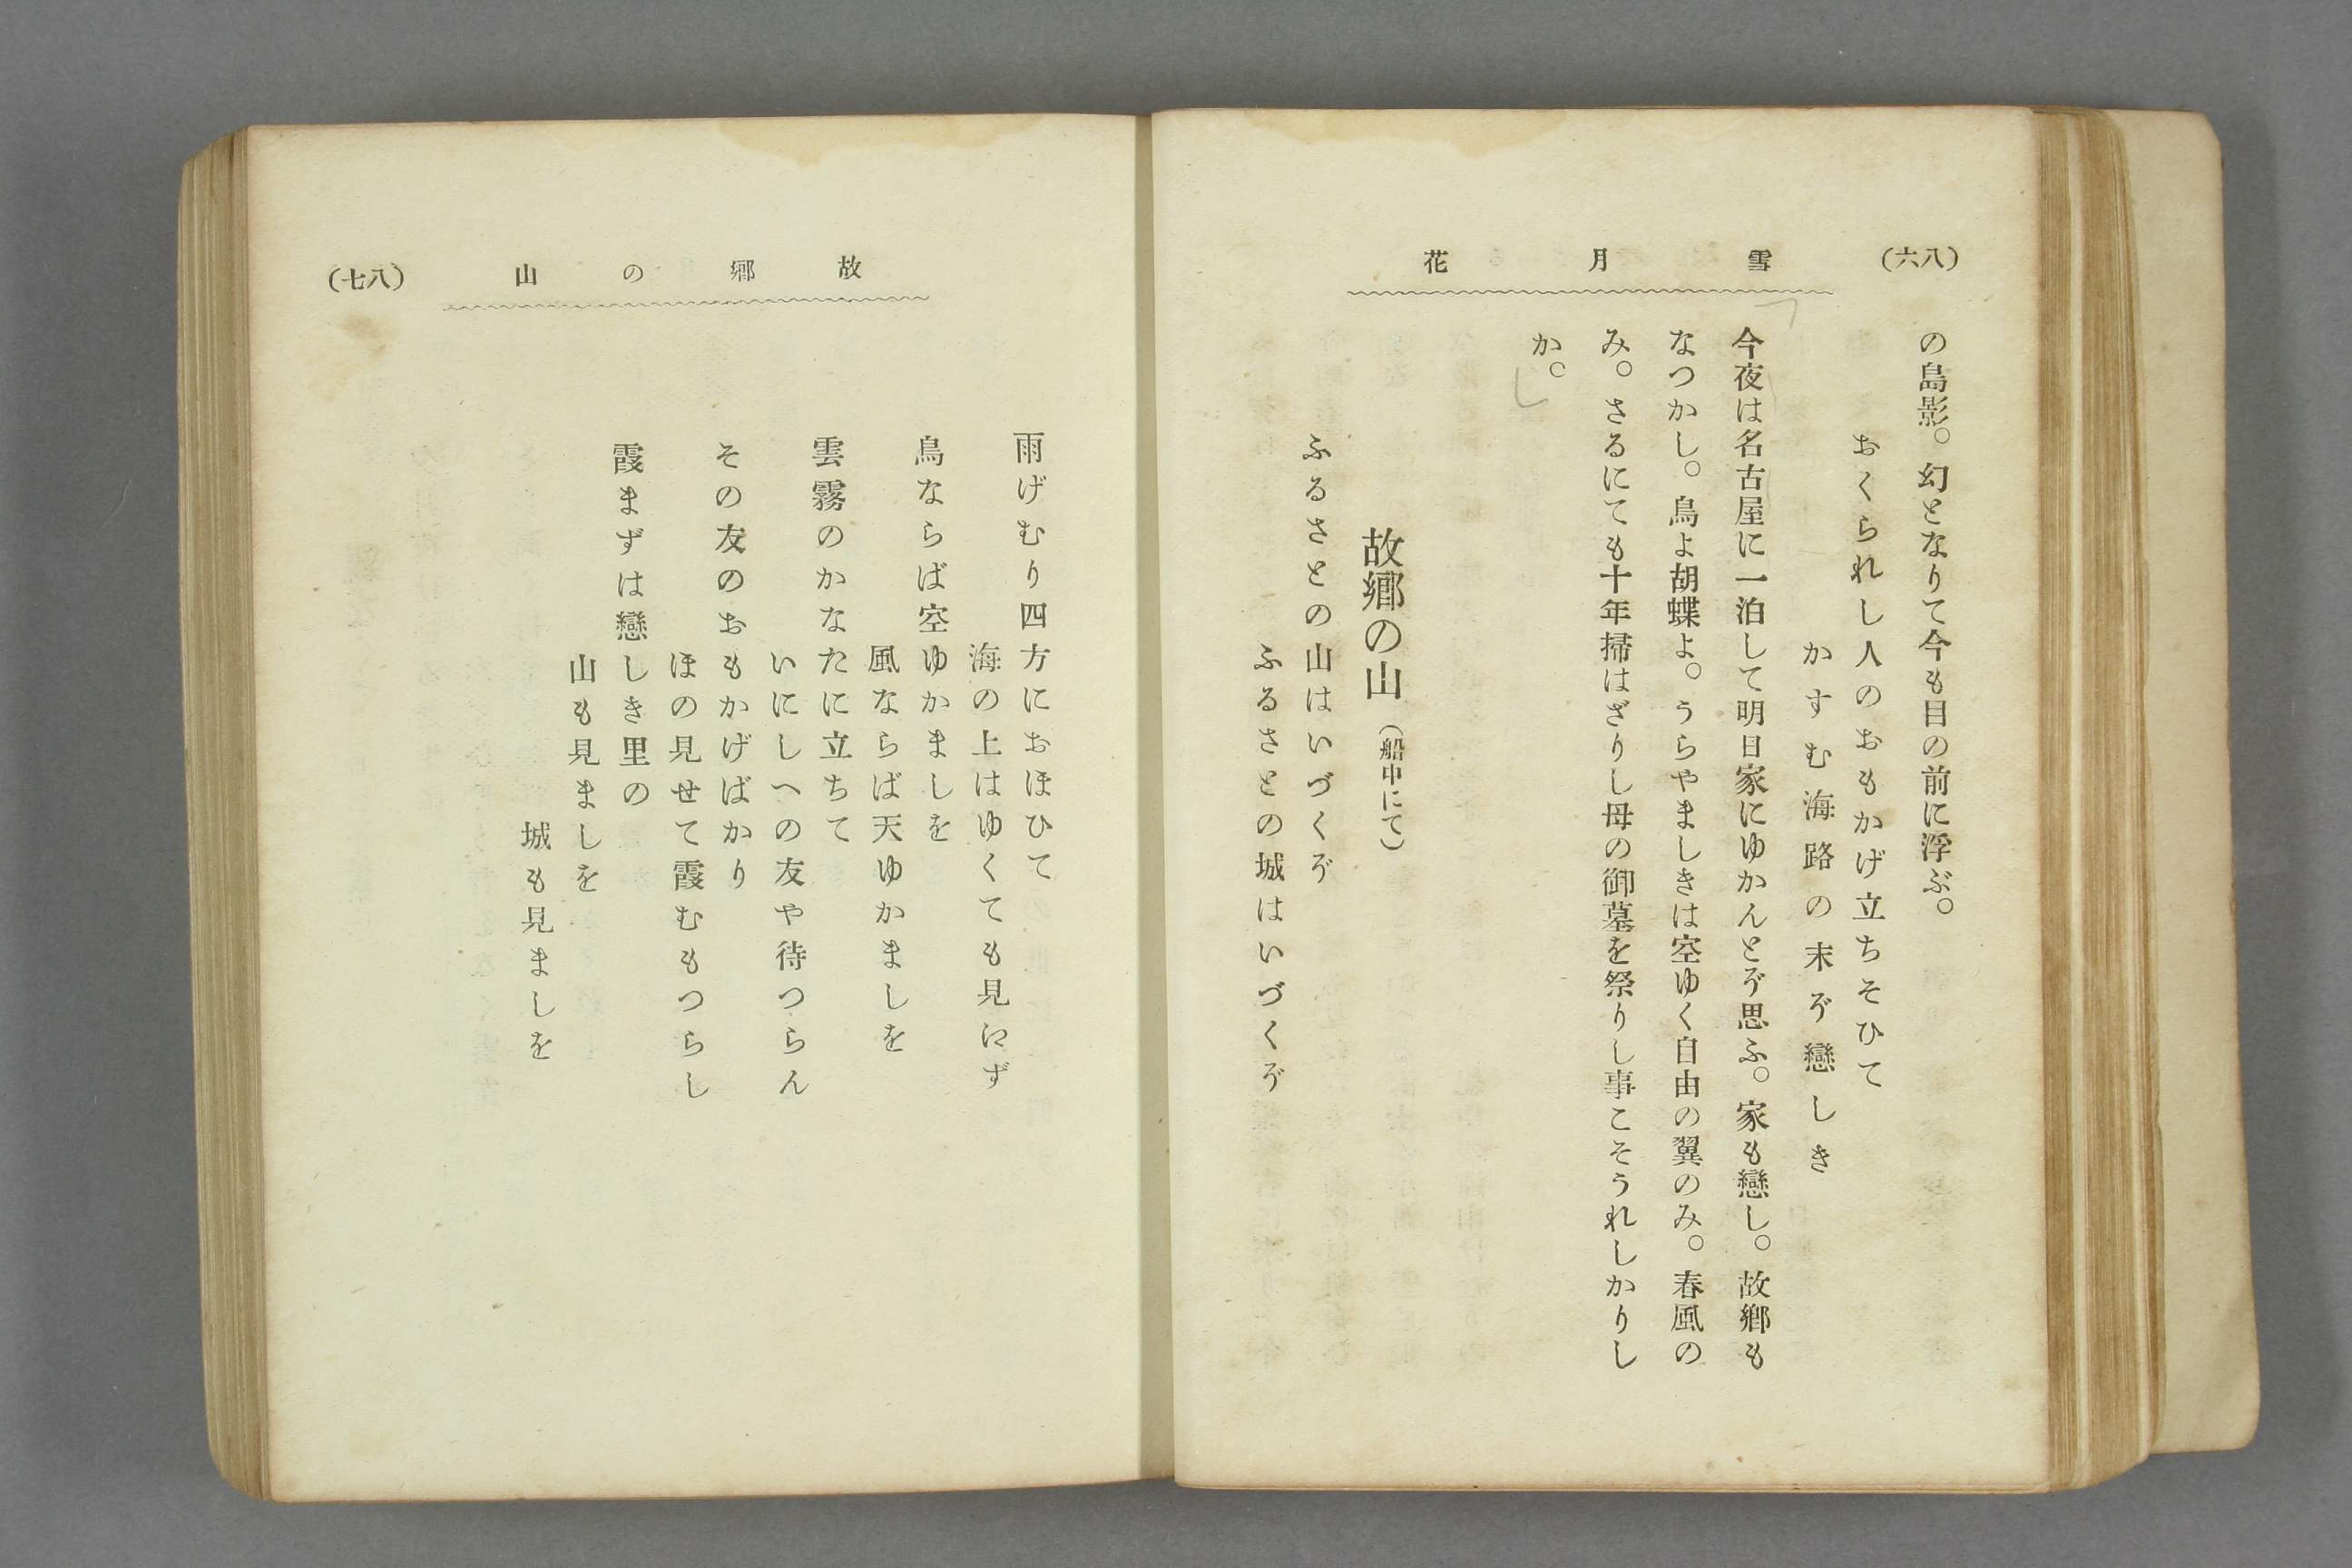 (八六)
雪月花
の島影。幻となりて今も目の前に浮ぶ。
おくられし人のおもかげ立ちそひて
かすむ海路の末ぞ戀しき
今夜は名古屋に一泊して明日家にゆかんとぞ思ふ。家も戀し。故鄕も
なつかし。鳥よ胡蝶よ。うらやましきは空ゆく自由の翼のみ。春風の
み。さるにても十年掃はざりし母の御墓を祭りし事こそうれしかりし
か。
故鄕の山(船中にて)
ふるさとの山はいづくぞ
ふるさとの城はいづくぞ
故鄕の山
(八七)
雨げむり四方におほひて
海の上はゆくても見えず
鳥ならば空ゆかましを
風ならば天ゆかましを
雲霧のかなたに立ちて
いにしへの友や待つらん
その友のおもかげばかり
ほの見せて霞むもつらし
霞まずは戀しき里の
山も見ましを
城も見ましを